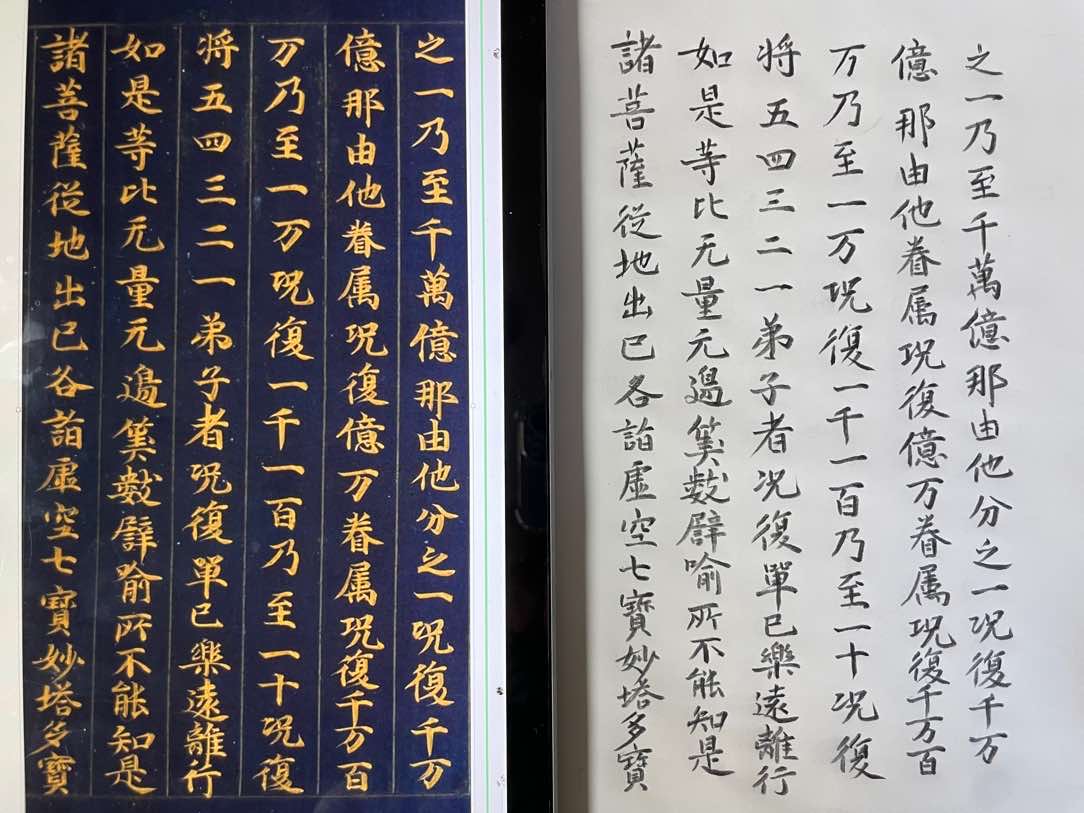 之一乃至千萬億那由他分之一呪復千万
億那由他眷属呪復億万眷属呪復千万百
万乃至一万呪復一千一百乃至一十呪復
将五四三二一弟子者呪復單已樂遠離行
如是等比无量无邉筭數譬喻所不能知是
諸菩薩從地出已各詣虛空七寶妙塔多寶
之一乃至千萬億那由他分之一呪復千万
億那由他眷属呪復億万眷属呪復千万百
万乃至一万呪復一千一百乃至一十呪復
将五四三二一弟子者况復單已樂遠離行
如是等比无量元邉筭數譬喻所不能知是
諸菩薩從地出已各詣虛空七寶妙塔多寶